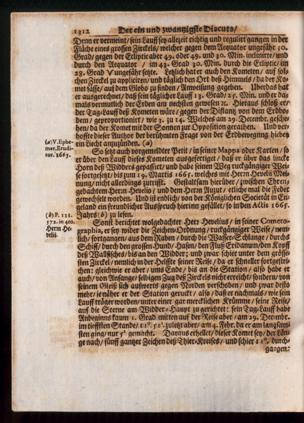 1312
Der ein und zwantzigste Discurs/
Denn er vermeint/ sein Lauff sey allezeit richtig und regulier gangen in der
Fläche eines grossen Zirckels/ welcher gegen dem Aequator ungefähr 30.
Grad/ gegen der Ecliptic aber 49. oder 49. und 30. Min. incliniree/ und
durch den Aequator / im 49. Grad 30. Min. durch die Ecliptic/ im
28. Grad ungefähr setze. Letzlich hat er auch den Kometen/ auf solchen
Zirckel zu appliciren/ und täglich den Ort deß Himmels/ da der Komet
sasse/ auf dem Globo zu finden/ Anweisung gegeben.
er ausgerechnet/ daß sein täglicher Lauff 13. Grad/ 25. Min. und
mals vermuthlich der Erden am nechsten gewesen
der Tag-Lauff deß Kometen wäre/ gegen der Distantz von dem Erdboden/
geproportionirt/ wie 5. zu 14. Welches am 29. Decemb. geschehen/
da der Komet mit der Sonnen zur Opposition gerathen. Und
hoffte dieser Author der berühmten Frage von der Erdbewegung hiedurch
ein Liecht anzuzünden. (a)
(a) V. Ephemer.
Erudior.
1665.
So setzt auch vorgemeldter Petit/ in seiner Mappa oder Karten/ so
er über den Lauff dieses Kometen ausgefertiget/ daß er über das lincke
Horn deß Widders gepassirt/ und habe seinen Weg rückgängiger Weise
fortgesetzt/ bis zum 19. Martii 1665. welches mit Herrn Hevelii Meinung/
nicht allerdings zutrifft. Gestaltsam hierüber/ zwischen
gedachtem Herrn Hevelio/ und dem Herrn Auzut/ etliche mal die Feder
gewechselt worden. Und ist endlich/ von der Königlichen Societät in Engeland
ein freundlicher Ausspruch hierinn gefället/ so in den Actis 1665.
Jahrs (b) zu lesen.
(b) P. 111.
372. in 4to.
Herrn Hevelii
Sonst berichtet wolgedachter Herr Hevelius/ in seiner Cometographia,
er sey wider die Zeichen-Ordnung/ ruckgängiger Weise/ nemlich/
fortgangen/ aus dem Raben/ durch die Wasser-Schlange/ durch
Schiff/ durch den grossen Hund/ Hasen/ den Fluß Eridanum/ den Kopff
deß Wallfisches/ bis an den Widder; und zwar schier unter dem grossen
Zirckel/ nemlich in der Helffte seiner Reise/ da er schneller fortgestrichen:
gleichwie er aber/ ums Ende/ bis an die Station/ also habe er
auch/ von Anfangs/ selbigen Zug deß Zirckels nicht erreicht/ sondern von
seinem Gleiß sich auswerts gegen Norden verschoben/ und zwar desto
mehr/ je näher er der Station geruckt/ also/ daß er nachmals/ wie sein
Lauff träger worden/ unter einer gar mercklichen Krümme/ seine Reise/
auf die Sterne am Widder-Haupt zu gerichtet: sein Tag-Lauff habe
Anbeginns kaum 1. Grad mitten auf der Reise aber/ am 29. Decemr.
im tieffsten Stande/ 11°. 52'. zuletzt aber/ am 4. Febr. da er am langsamsten
ging/ nur 5'. gemacht. Daraus erhellet/ dieser Komet sey/ der Länge
nach/ fünff gantzer Zeichen deß Thier-Kreises/ und schier 11°. durchgangen: